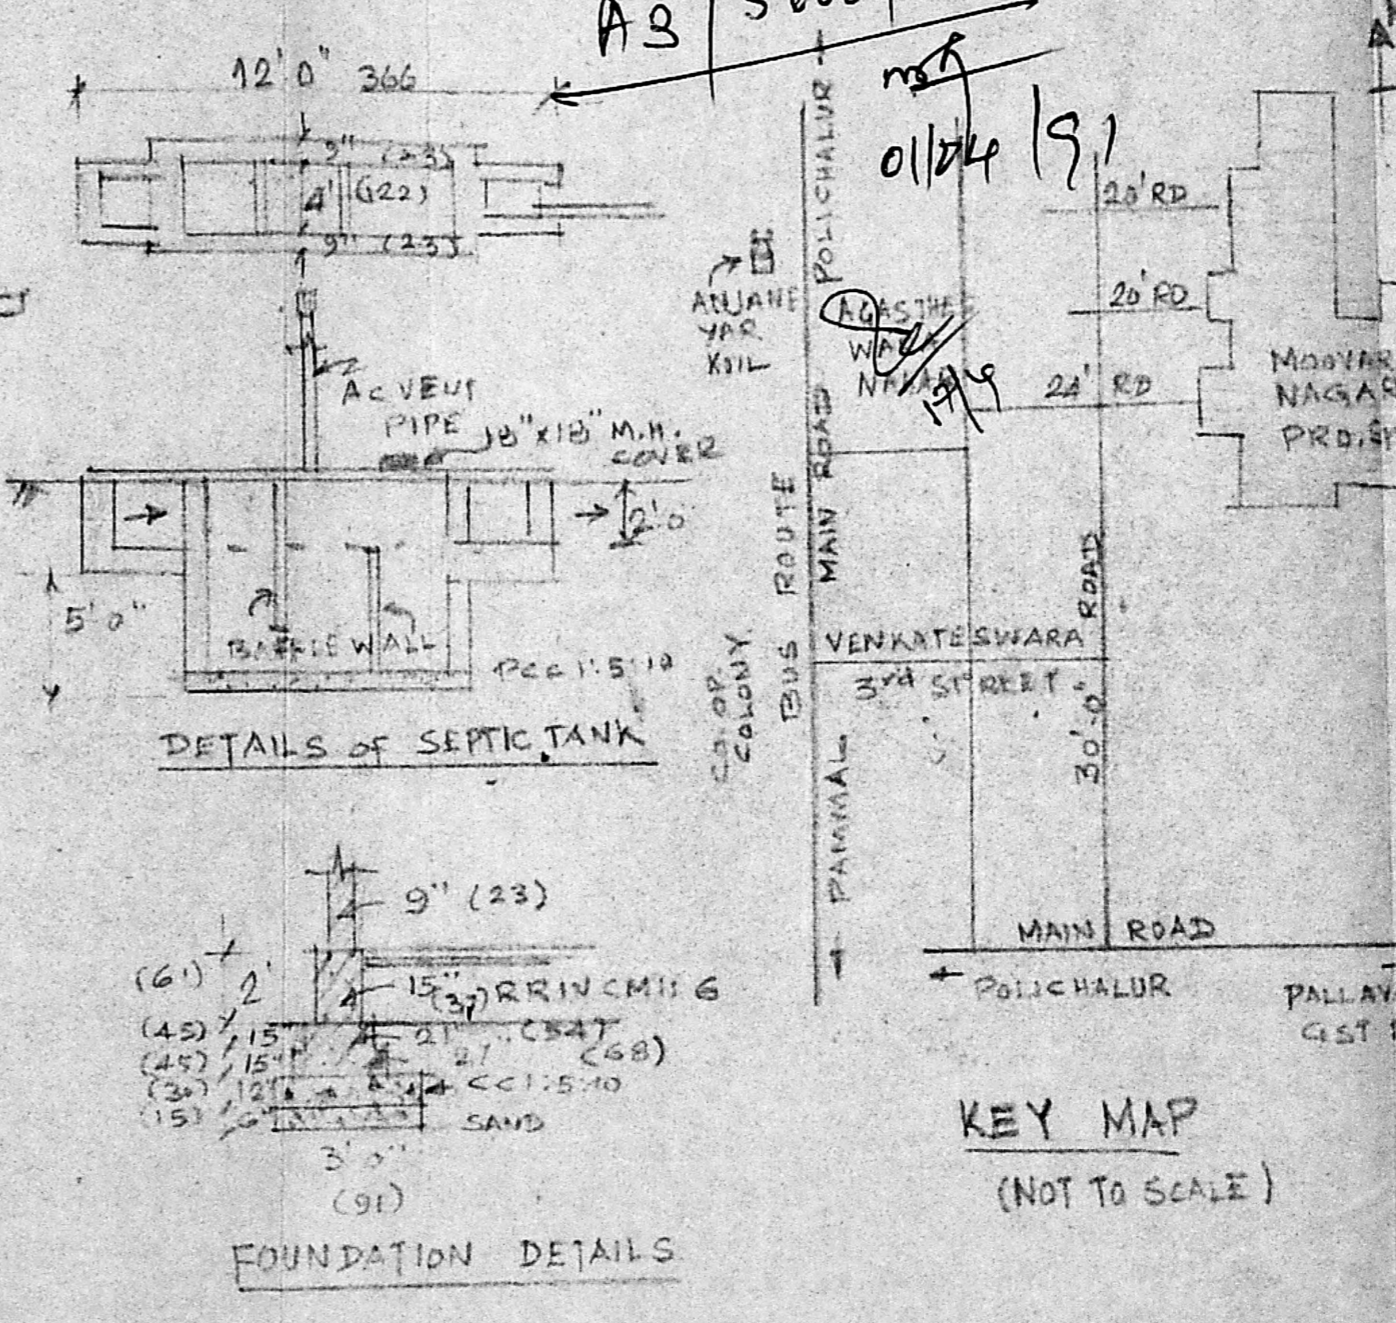 A3
12'0" 366
9" (23)
4' (122)
9" (23)
AC VENT
PIPE
18"x18" M.H.
COVER
2'0
5'0"
BAFFLE WALL
PCC 1:5:10
DETAILS of SEPTIC TANK
9" (23)
(61) 2'
15" (37) RR IN CM 1:6
(45) 15
21" (54)
(45) 15"
(68)
(30) 12"
CC 1:5:10
(15) 6"
SAND
3'0"
(91)
FOUNDATION DETAILS
POLICHALUR
01/04/91
20' RD
ANJANE
YAR
KOIL
20' RD
24' RD
17/4
MOOVAR
NAGAR
MAIN ROAD
BUS ROUTE
ROAD
VENKATESWARA
3rd STREET
CO.OP
COLONY
30'-0"
PAMMAL
MAIN ROAD
POLICHALUR
PALLAV
GST
KEY MAP
(NOT TO SCALE)